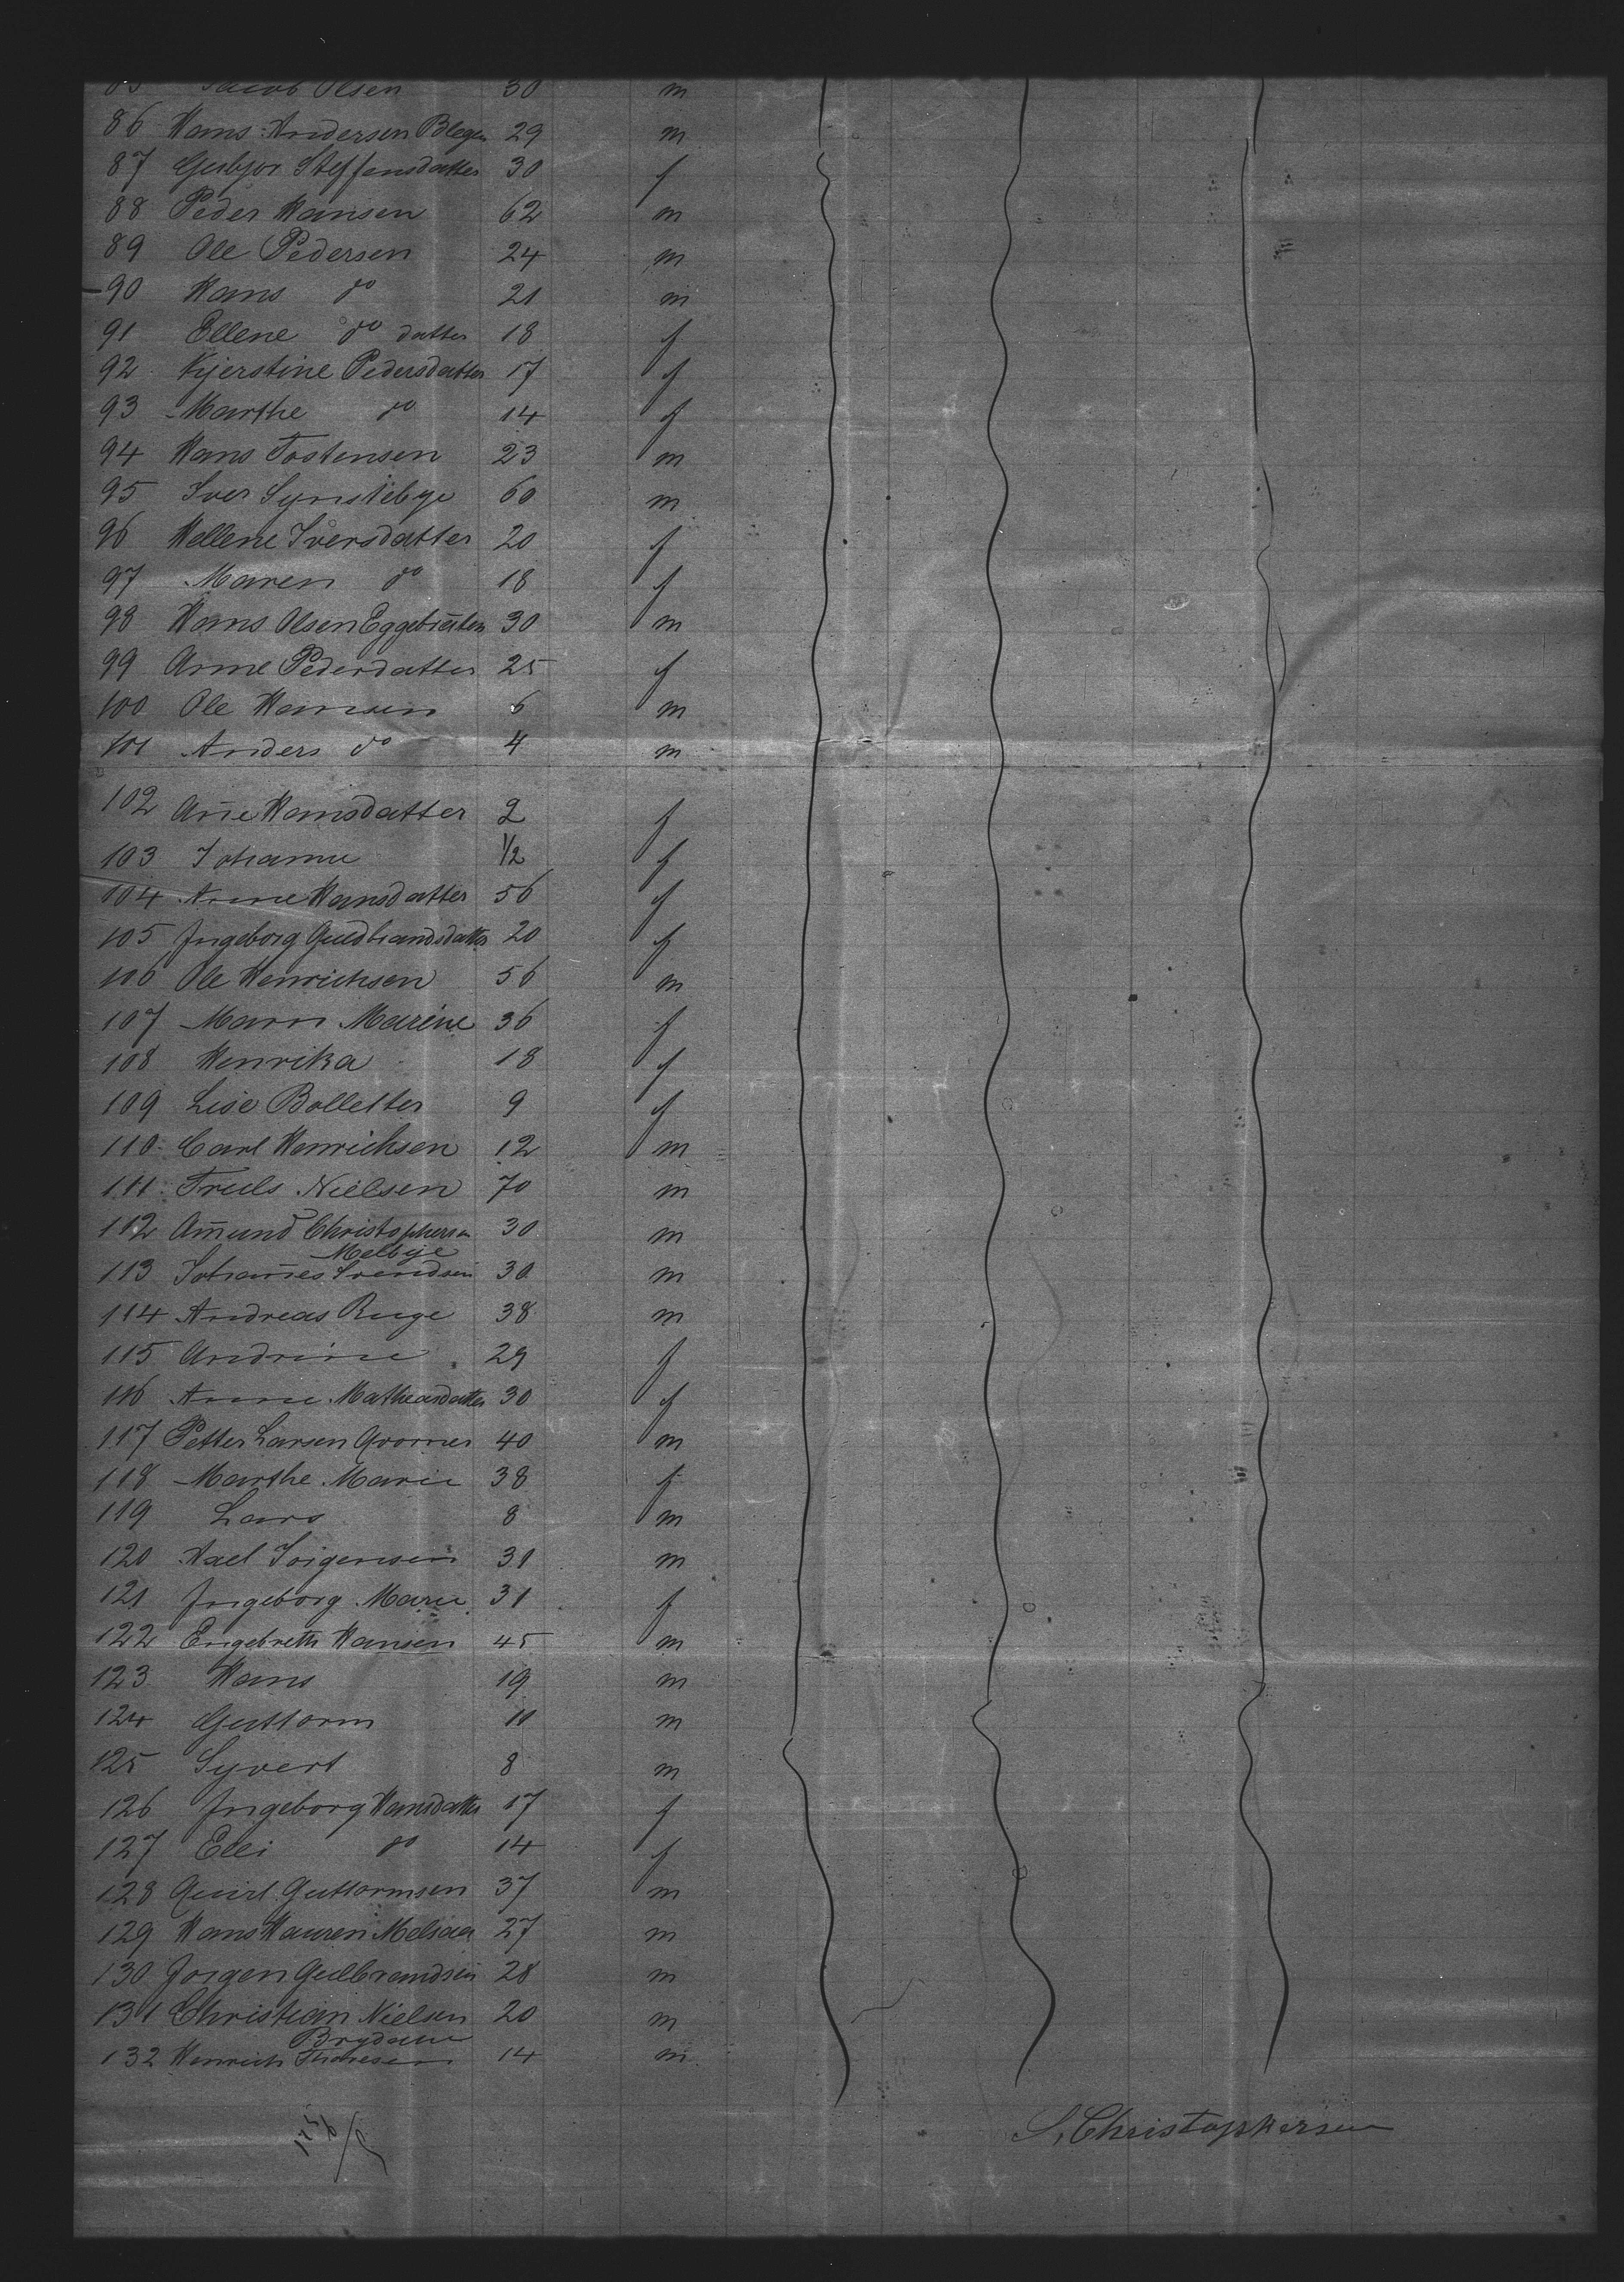 85 Jacob Olsen 30 m
86 Hans Andersen Blegen 29 m
87 Gurbjør Steffensdatter 30 f
88 Peder Hansen 62 m
89 Ole Pedersen 24 m
90 Hans do 21 m
91 Ellene do datter 18 f
92 Kjerstine Pedersdatter 17 f
93 Marthe do 14 f
94 Hans Tostensen 23 m
95 Iver Synstebye 60 m
96 Hellene Iversdatter 20 f
97 Maren do 18 f
98 Hans Olsen Eggebraaten 30 m
99 Anne Pedersdatter 25 f
100 Ole Hansen 6 m
101 Anders do 4 m
102 An̄e Hansdatter 2 f
103 Johanne 1/2 f
104 Anne Hansdatter 56 f
105 Ingeborg Guldbrandsdatter 20 f
106 Ole Henrichsen 56 m
107 Maren Marine 36 f
108 Henrika 18 f
109 Lise Bolletter 9 f
110 Carl Henrichsen 12 m
111 Truls Nielsen 70 m
112 Am̄und Christophersen 30 m
Melbye
113 Johan̄es Svendsen 30 m
114 Andreas Ruge 38 m
115 Andrine 29 f
116 Anne Matheasdatter 30 f
117 Petter Larsen 40 m
118 Marthe Marie 38 f
119 Lars 8 m
120 Axel Jorgensen 31 m
121 Ingeborg Marie 31 f
122 Engebreth Hansen 45 m
123 Hans 19 m
124 Guttorm 11 m
125 Syvert 8 m
126 Ingeborg Hansdatter 17 f
127 Elli do 14 f
128 Guttormsen 37 m
129 Hans Hansen 27 m
130 Jorgen Gulbrandsen 28 m
131 Christian Nielsen 20 m
132 Henrich Thoresen 14 m
S, Christophersen